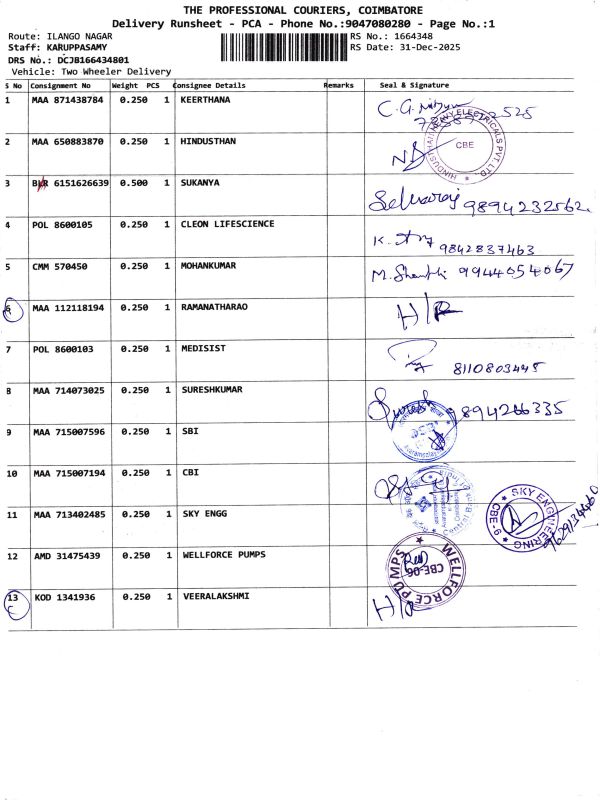 THE PROFESSIONAL COURIERS, COIMBATORE
Delivery Runsheet - PCA - Phone No.:9047080280 - Page No.:1
Route: ILANGO NAGAR RS No.: 1664348
Staff: KARUPPASAMY RS Date: 31-Dec-2025
DRS No.: DCJB166434801
Vehicle: Two Wheeler Delivery
S No Consignment No Weight PCS Consignee Details Remarks Seal & Signature
1 MAA 871438784 0.250 1 KEERTHANA
2 MAA 650883870 0.250 1 HINDUSTHAN CBE
3 6151626639 0.500 1 SUKANYA Selvaraj 9894232562
4 POL 8600105 0.250 1 CLEON LIFESCIENCE 9842837463
5 CMM 570450 0.250 1 MOHANKUMAR M. Shanthi 9944054067
6 MAA 112118194 0.250 1 RAMANATHARAO
7 POL 8600103 0.250 1 MEDISIST 8110803445
8 MAA 714073025 0.250 1 SURESHKUMAR Suresh
9 MAA 715007596 0.250 1 SBI
10 MAA 715007194 0.250 1 CBI
11 MAA 713402485 0.250 1 SKY ENGG SKY ENGINEERING CBE-9
12 AMD 31475439 0.250 1 WELLFORCE PUMPS WELLFORCE PUMPS CBE-06
13 KOD 1341936 0.250 1 VEERALAKSHMI